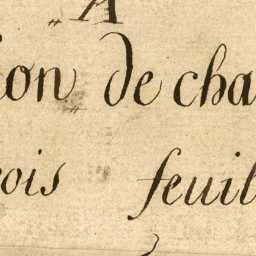 A
ion de cha
ois feuil